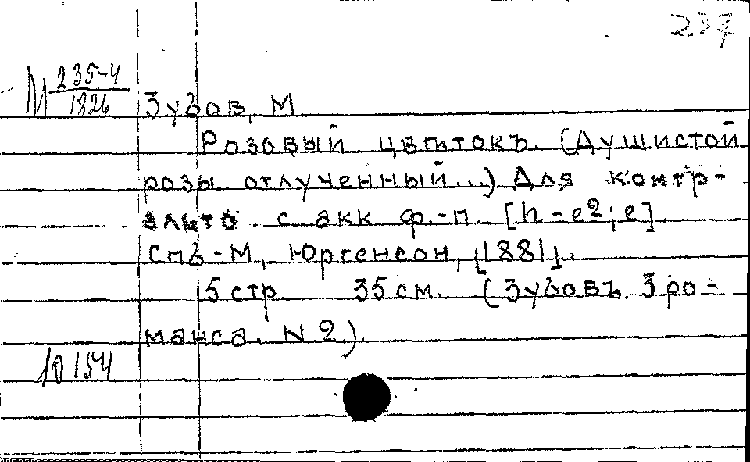 237
М 235-4/1826
Зубов, М
Розовый цвѣтокъ. (Душистой
розы отлученный...) Для контр-
альто с акк ф.-п. [h-e2; e].
Спб-М, Юргенсон, [1881].
5 стр. 35 см. (Зубовъ. 3 ро-
манса. N 2).
10154